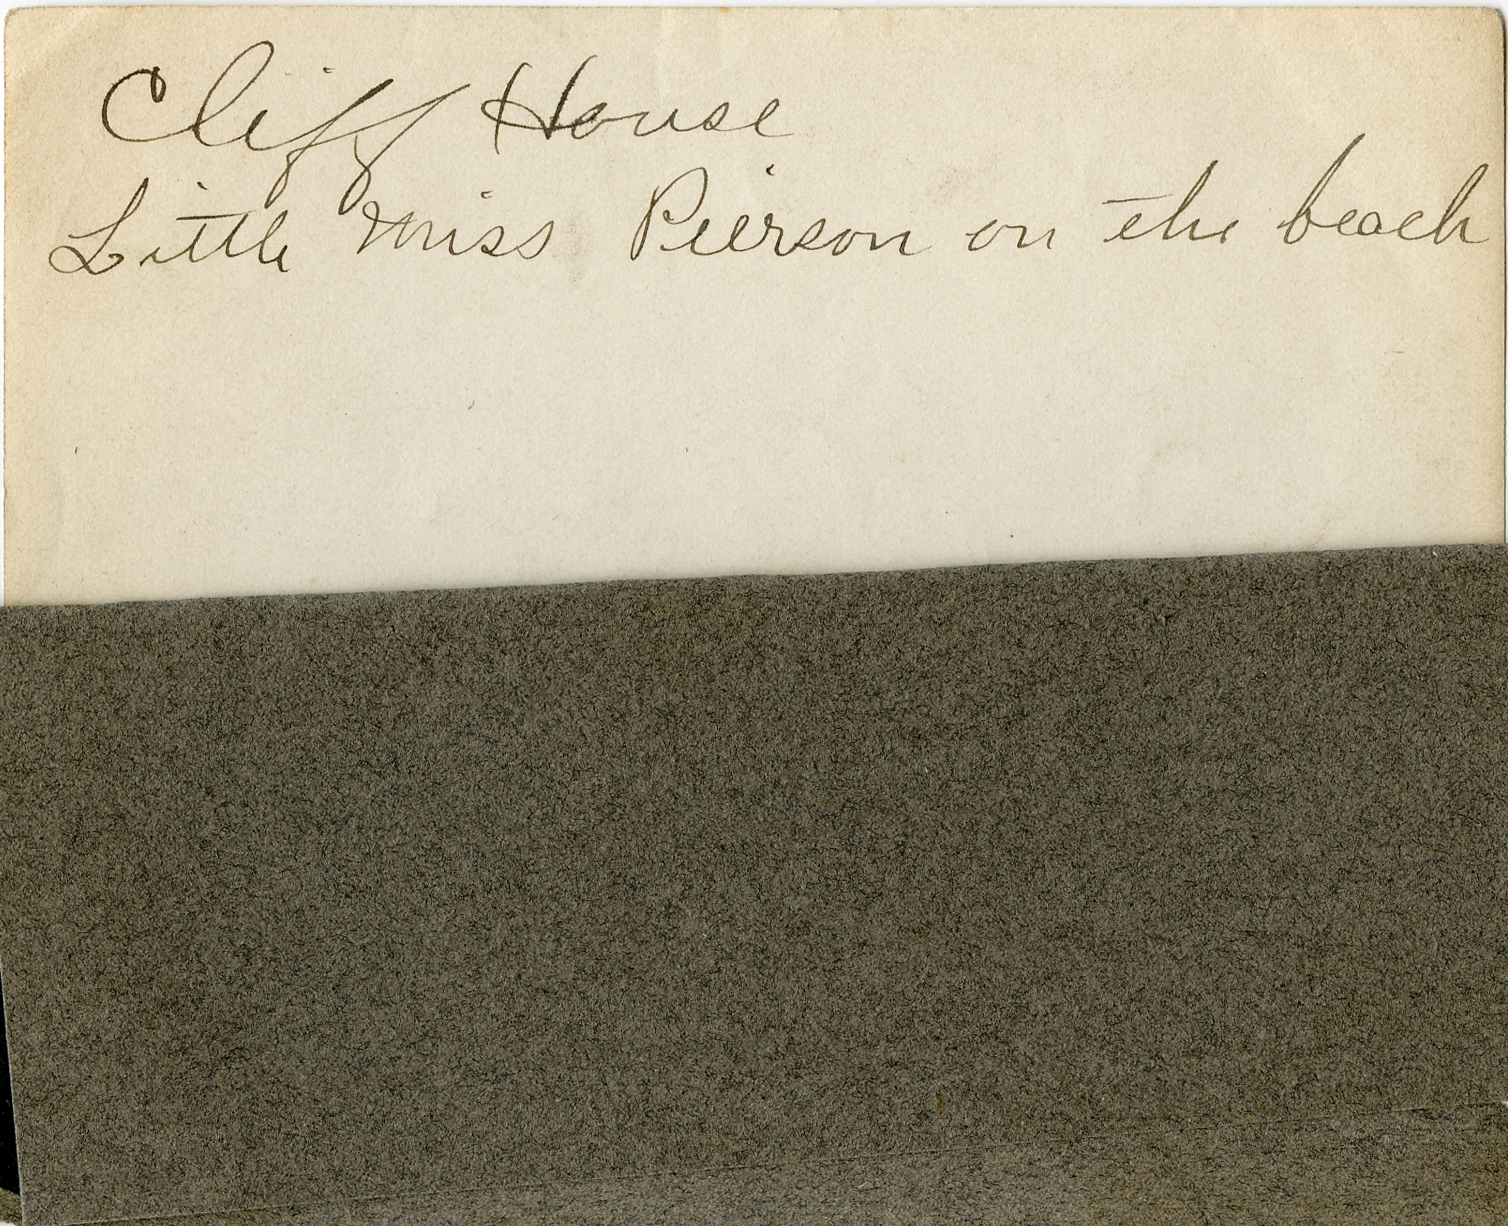 Cliff House
Little Miss Pierson on the beach